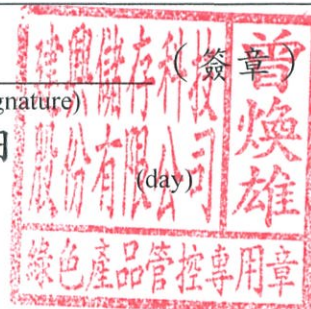 (簽章)
gnature)
日
(day)
建興儲存科技
股份有限公司
曾煥雄
綠色產品管控專用章